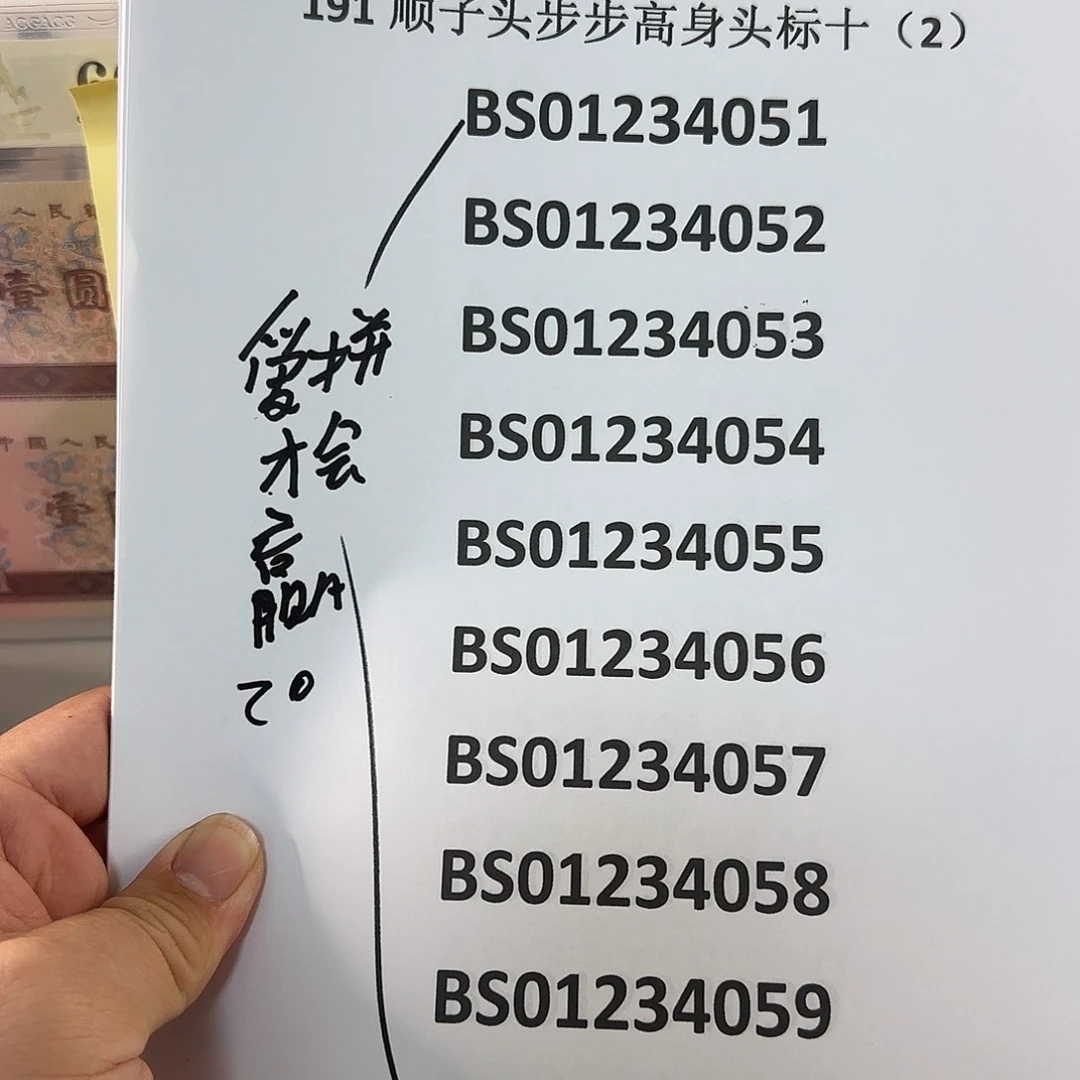 191 顺子头步步高身头标十（2）
BS01234051
BS01234052
BS01234053
BS01234054
BS01234055
BS01234056
BS01234057
BS01234058
BS01234059
爱拼
才会
人民
壹圆
中国人民
壹